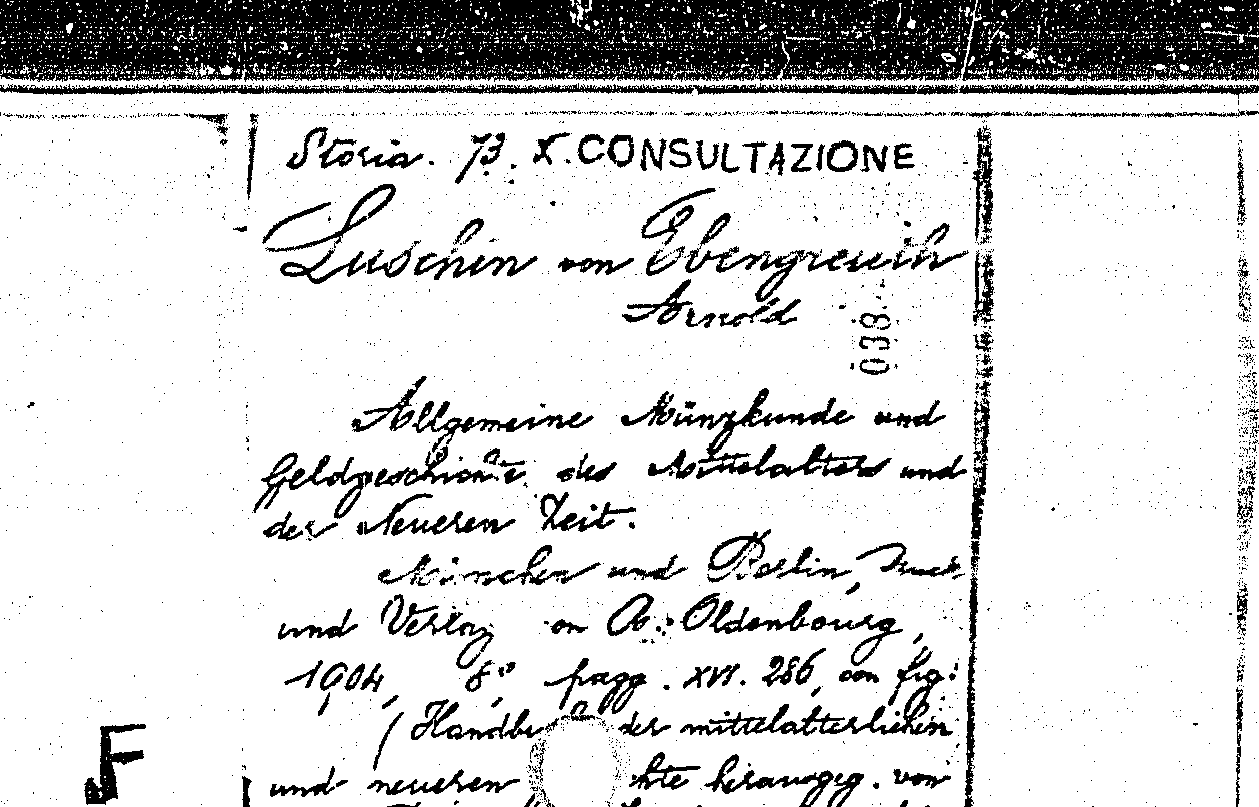 Storia. 73. X. CONSULTAZIONE
Luschin von Ebengreuth
Arnold
038
Allgemeine Münzkunde und
Geldgeschichte des Mittelalters und
der Neueren Zeit.
München und Berlin, Druck
und Verlag on A. Oldenbourg,
1904, 8°, pagg. XVI. 286, con fig:
(Handbu der mittelalterlichen
und neueren hte herausgeg. von
F